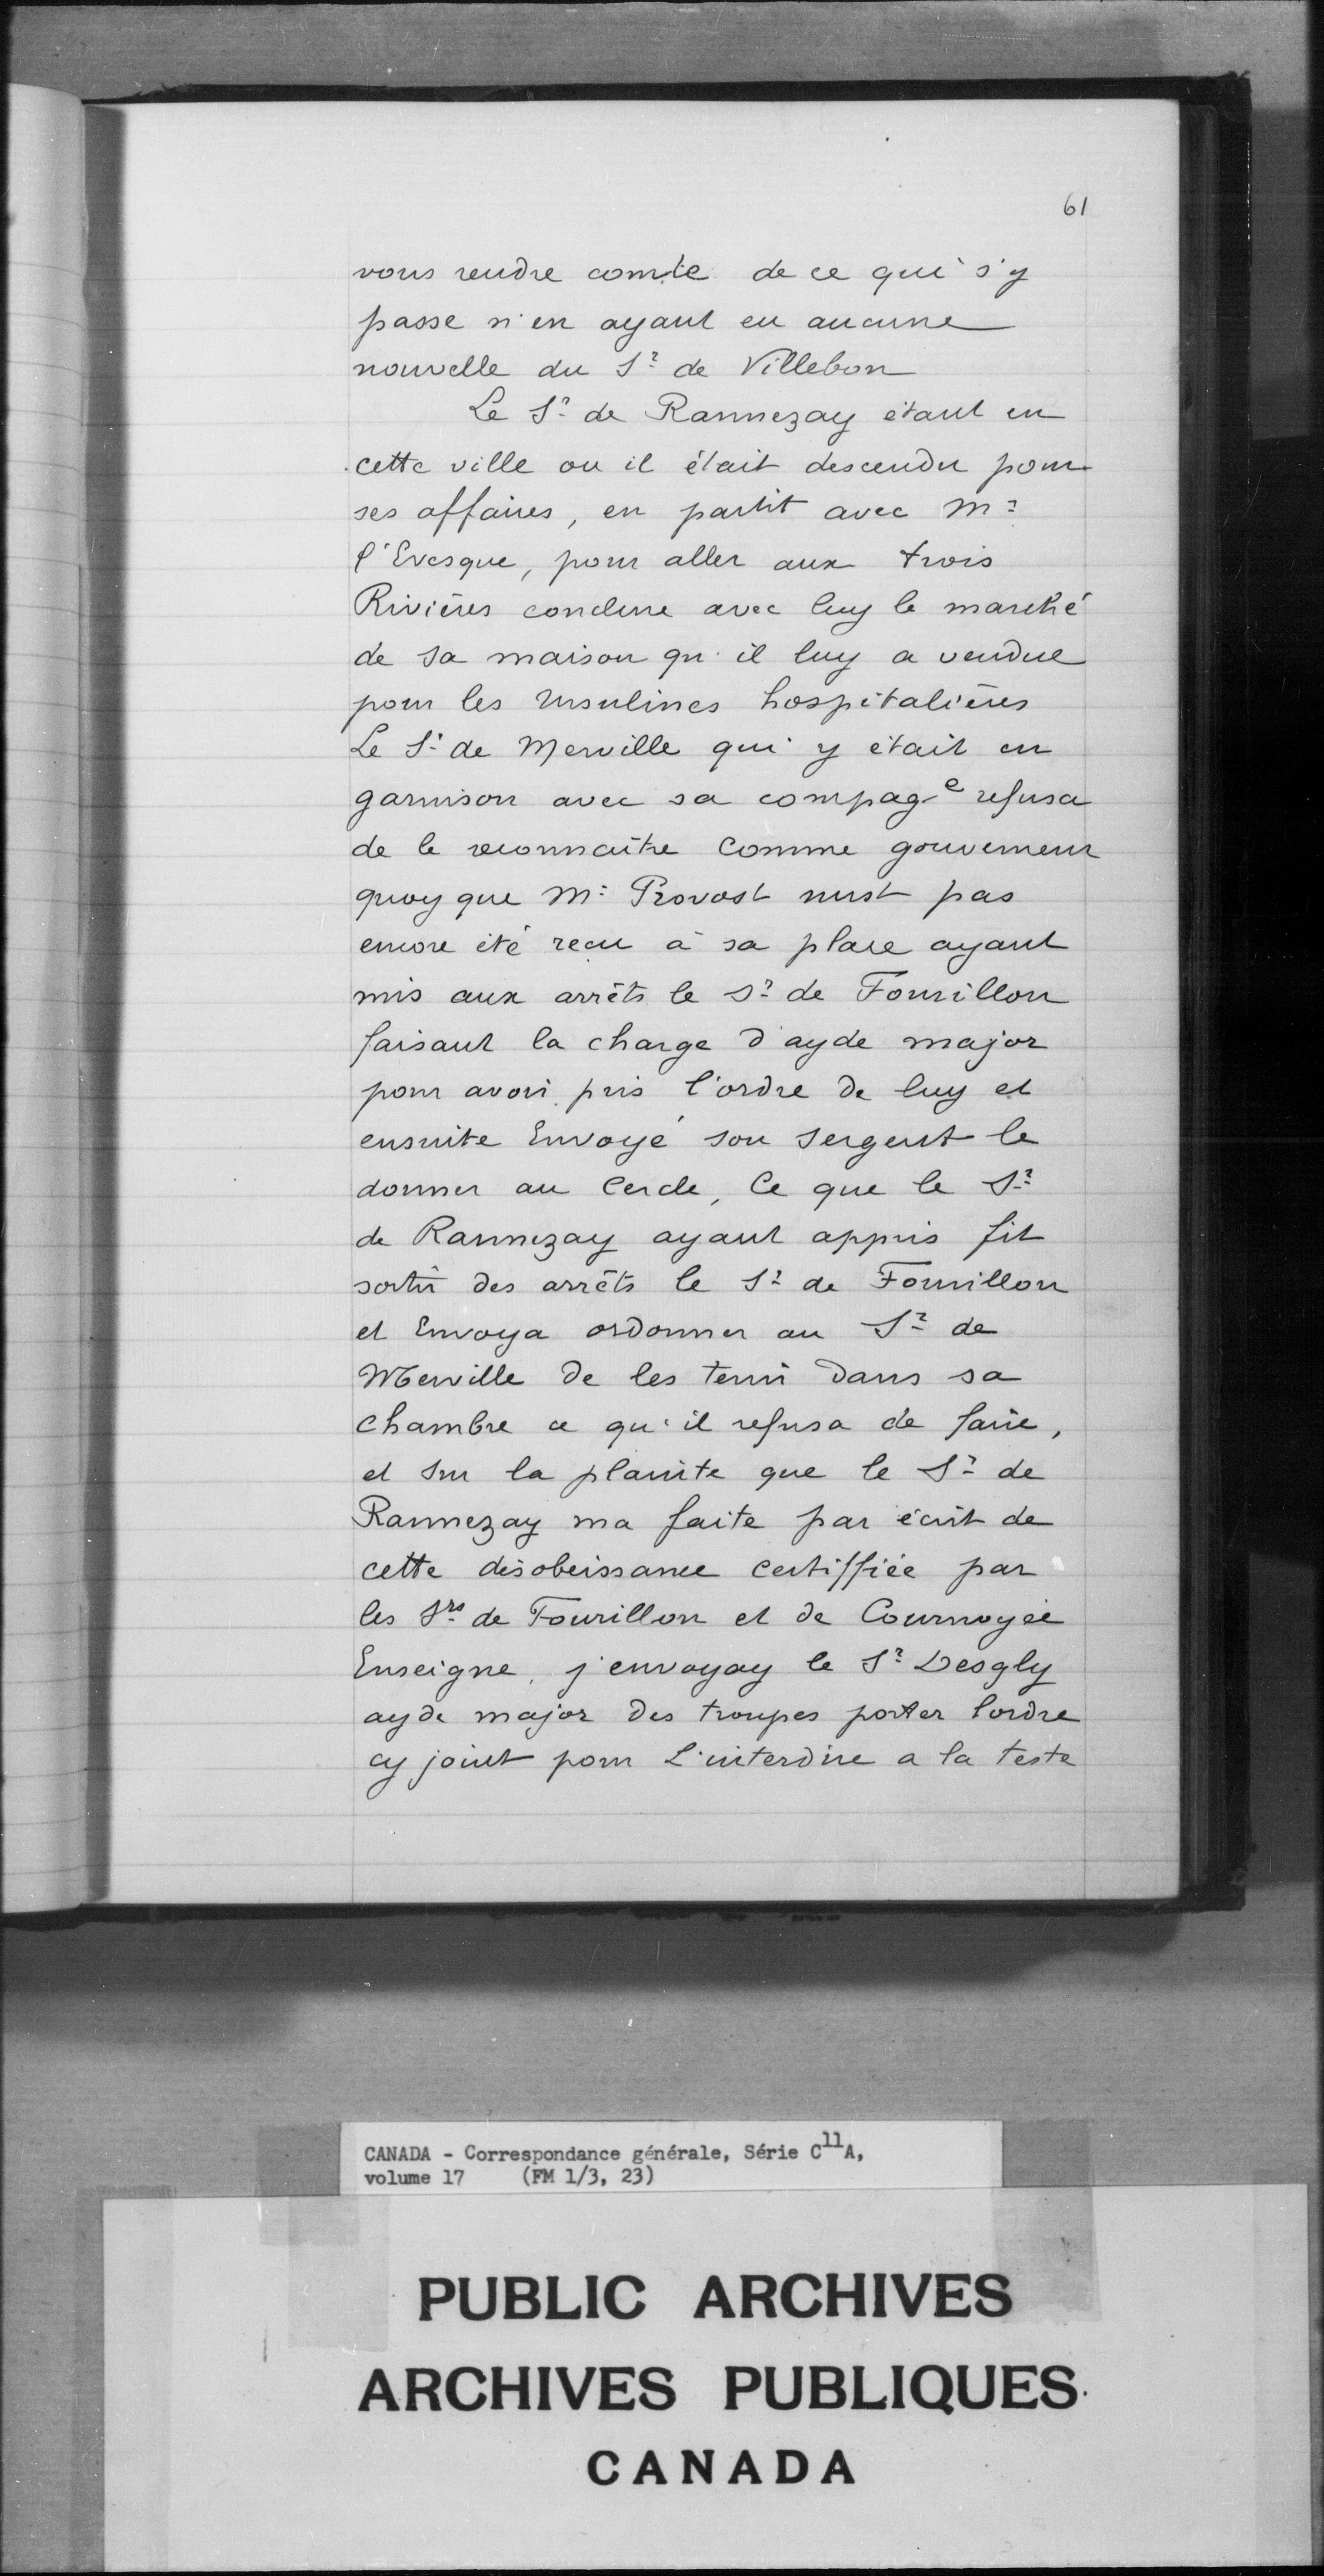 61
vous rendre comte de ce qui s'y
passe n'en ayant eu aucune
nouvelle du Sr de Villebon
Le Sr de Rannezay étant en
cette ville ou il était descendu pour
ses affaires, en partit avec Mr
l'Evesque, pour aller aux trois
Rivières conclure avec luy le marché
de sa maison qu'il luy a vendue
pour les Ursulines hospitalières
Le Sr de Merville qui y était en
garnison avec sa compage refusa
de le reconnaître comme gouverneur
quoy que Mr Provost nust pas
encore été recu à sa place ayant
mis aux arrêts le Sr de Fourillon
faisant la charge d'ayde major
pour avoir pris l'ordre de luy et
ensuite Envoyé son sergent le
donner au Cercle, Ce que le Sr
de Rannezay ayant appris fit
sortir des arrêts le Sr de Fourillon
et Envoya ordonner au Sr de
Merville de les tenir dans sa
chambre ce qu'il refusa de faire,
et sur la plainte que le Sr de
Rannezay ma faite par écrit de
cette désobeissance certiffiée par
les Srs de Fourillon et de Cournoyée
Enseigne, j'envoyay le Sr Desgly
ayde major des troupes porter lordre
cy joint pour L'interdire a la teste
CANADA - Correspondance générale, Série C11A,
volume 17 (FM 1/3, 23)
PUBLIC ARCHIVES
ARCHIVES PUBLIQUES
CANADA